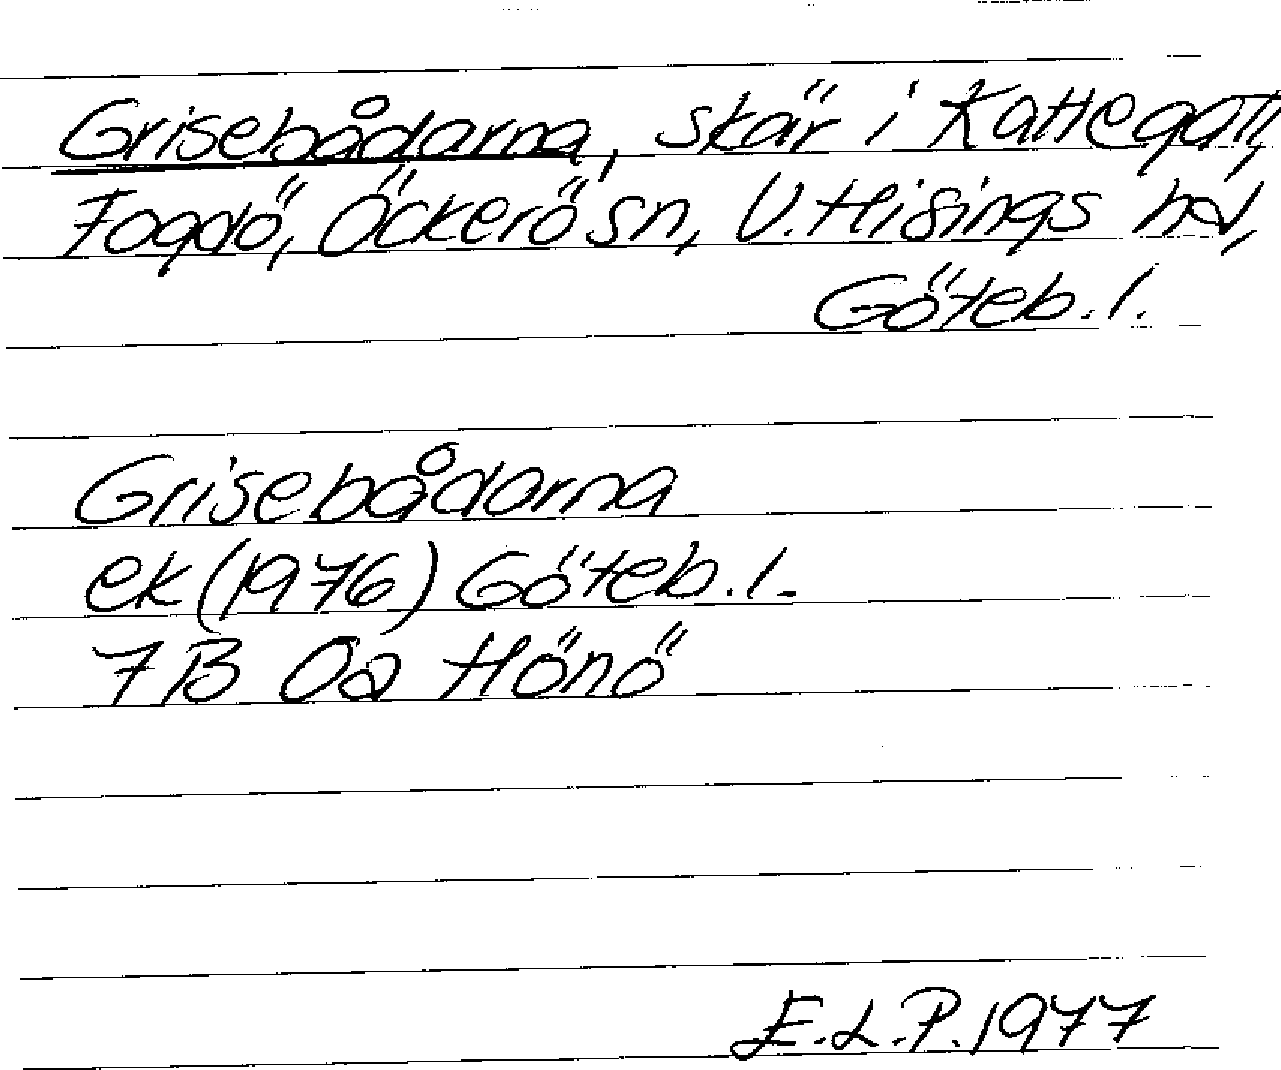 Grisebådarna, skär i Kattegatt,
Fogdö, Öckerö sn, V. Hisings hd,
Göteb. l.
Grisebådarna
ek (1976) Göteb. l.
7B 0a Hönö
E.L.P. 1977